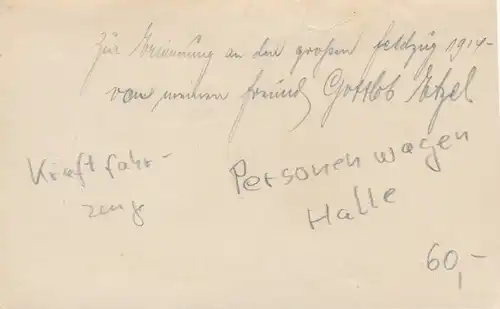 Zür Erinnerung an den großen feldzüg 1914-
von meinen freund Gottlob Etzel
Kraftfahr-
zeug
Personenwagen
Halle
60,-